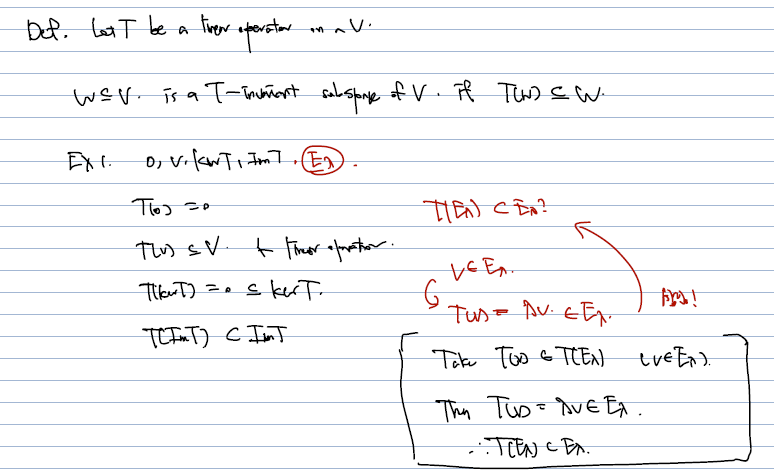 Def. Let T be a linear operator on a V.
W ⊆ V. is a T-invariant subspace of V. if T(W) ⊆ W.
Ex 1. 0, V, kerT, ImT, Eλ.
T(0) = 0
T(V) ⊆ V. ← linear operator.
T(kerT) = 0 ⊆ kerT.
T(ImT) ⊂ ImT
T(Eλ) ⊂ Eλ?
v ∈ Eλ.
T(v) = λv. ∈ Eλ.
Take T(v) ∈ T(Eλ) (v ∈ Eλ).
Then T(v) = λv ∈ Eλ.
∴ T(Eλ) ⊂ Eλ.